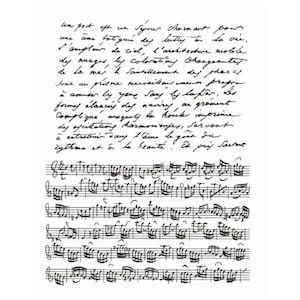 Un port est un séjour charmant pour
une âme fatiguée des luttes de la vie.
L'ampleur du ciel, l'architecture mobile
des nuages, les colorations changeantes
de la mer, le scintillement des phares
sont un prisme merveilleusement propre
à amuser les yeux sans les lasser. Les
formes élancées des navires, au gréement
compliqué, auxquels la houle imprime
des oscillations harmonieuses, servent
à entretenir dans l'âme le goût du
rythme et de la beauté. Et puis, surtout